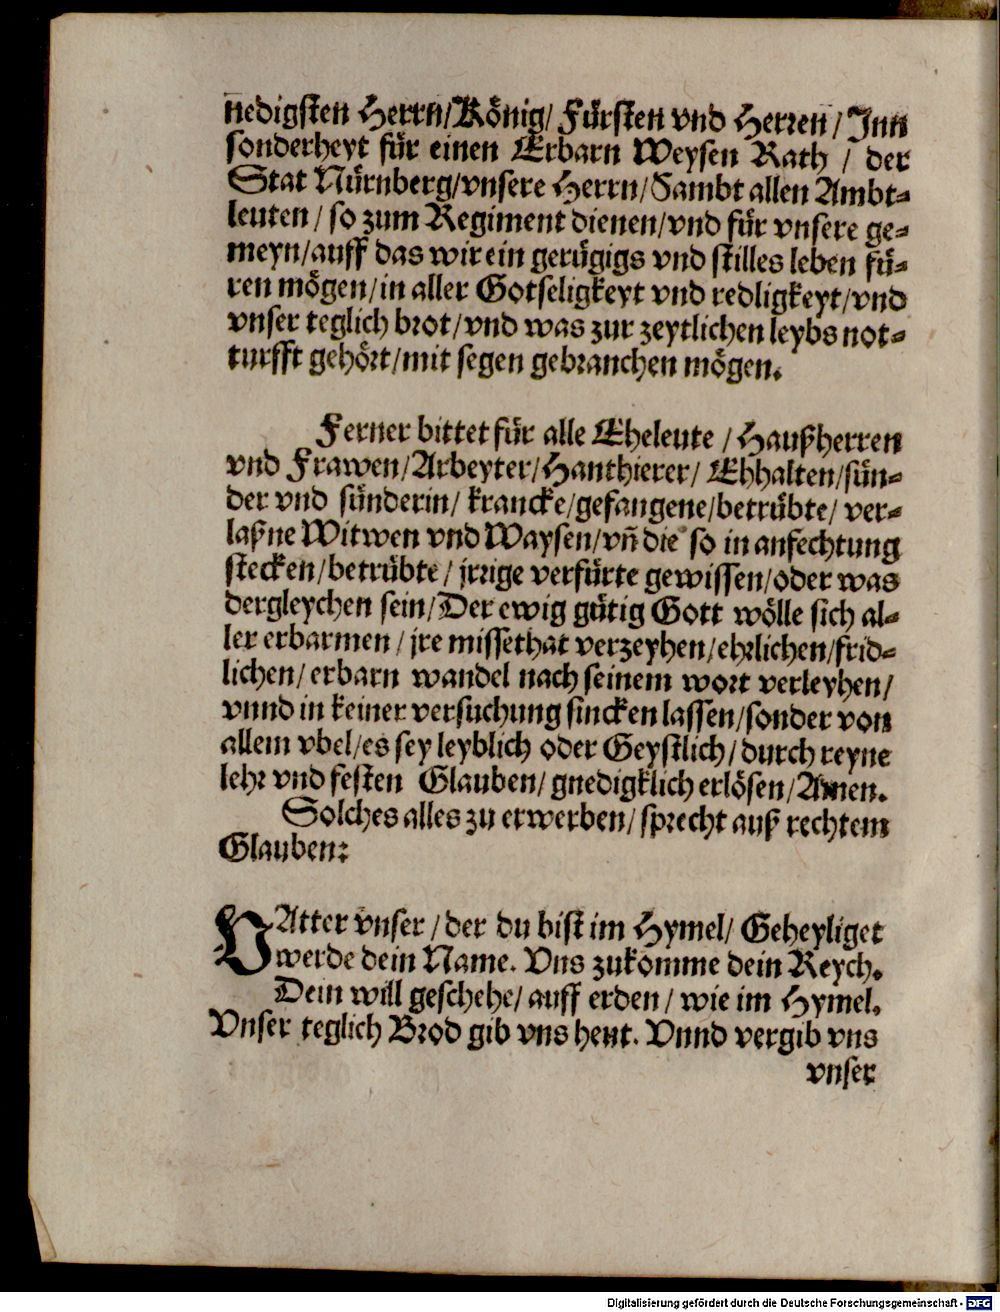 nedigsten Herrn/König/ Fürsten vnd Herren / Jnn
sonderheyt für einen Erbarn Weysen Rath / der
Stat Nürnberg/vnsere Herrn/Sambt allen Ambt⸗
leuten / so zum Regiment dienen/vnd für vnsere ge⸗
meyn/auff das wir ein gerügigs vnd stilles leben fü⸗
ren mögen/in aller Gotseligkeyt vnd redligkeyt/vnd
vnser teglich brot/vnd was zur zeytlichen leybs not⸗
turfft gehört/mit segen gebrauchen mögen.
Ferner bittet für alle Eheleute / Haußherren
vnd Frawen/Arbeyter/Hanthierer/ Ehhalten/sün⸗
der vnd sünderin/ krancke/gefangene/betrübte/ ver⸗
laßne Witwen vnd Waysen/vñ die so in anfechtung
stecken/betrübte / jrrige verfürte gewissen/oder was
dergleychen sein/Der ewig gütig Gott wölle sich al⸗
ler erbarmen / jre missethat verzeyhen/ehrlichen/frid⸗
lichen/ erbarn wandel nach seinem wort verleyhen/
vnnd in keiner versuchung sincken lassen/sonder von
allem vbel/es sey leyblich oder Geystlich/durch reyne
lehr vnd festen Glauben/ gnedigklich erlösen/Amen.
Solches alles zu erwerben/ sprecht auß rechtem
Glauben:
VAtter vnser / der du bist im Hymel/ Geheyliget
werde dein Name. Vns zukomme dein Reych.
Dein will geschehe/ auff erden / wie im Hymel.
Vnser teglich Brod gib vns heut. Vnnd vergib vns
vnser
Digitalisierung gefördert durch die Deutsche Forschungsgemeinschaft - DFG